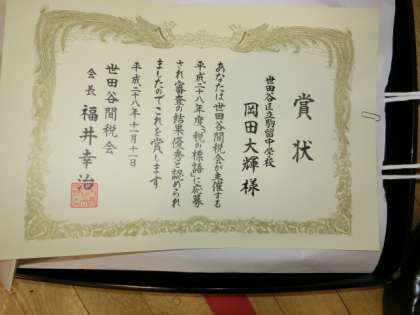 賞状
世田谷区立駒留中学校
岡田大輝様
あなたは世田谷間税会が主催する
平成二十八年度「税の標語」に応募
され審査の結果優秀と認められ
ましたのでこれを賞します
平成二十八年十一月十一日
世田谷間税会
会長 福井幸治